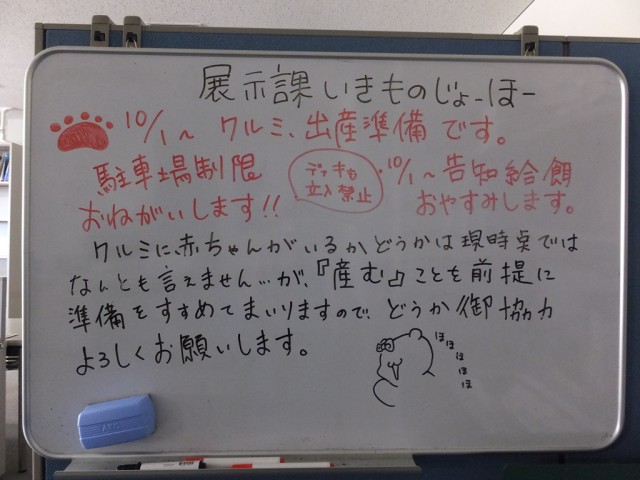 展示課いきものじょーほー
10/1～ クルミ、出産準備です。
駐車場制限
おねがいします!!
デッキも
立入禁止
・10/1～告知給餌
おやすみします。
クルミに、赤ちゃんがいるかどうかは現時点では
なんとも言えません…が、『産む』ことを前提に
準備をすすめてまいりますので、どうか御協力
よろしくお願いします。
ほほほほほ